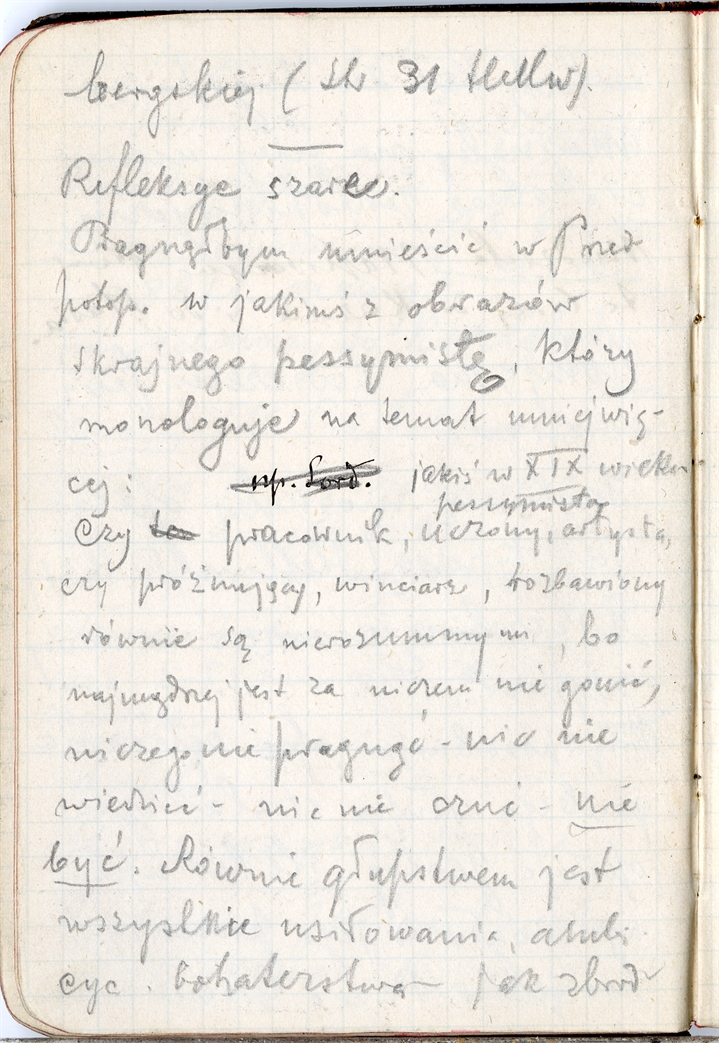 bergskiej (str 31
Refleksye szare.
Pragnąłbym umieścić w Przed
potop. w jakimś z obrazów
skrajnego pessymistę, który
monologuje na temat mniejwię-
cej: np. Lord. jakiś w XIX wieku
pessymista
Czy pracownik, uczony, artysta,
czy próżnujący, winciarz, rozbawiony
równie są nierozumnymi, bo
najmądrzej jest za niczem nie gonić,
niczego nie pragnąć - nic nie
wiedzieć - nic nie czuć - nie
być. Równie głupstwem jest
wszystkie usiłowania, ambi
cye. bohaterstwa jak zbrod